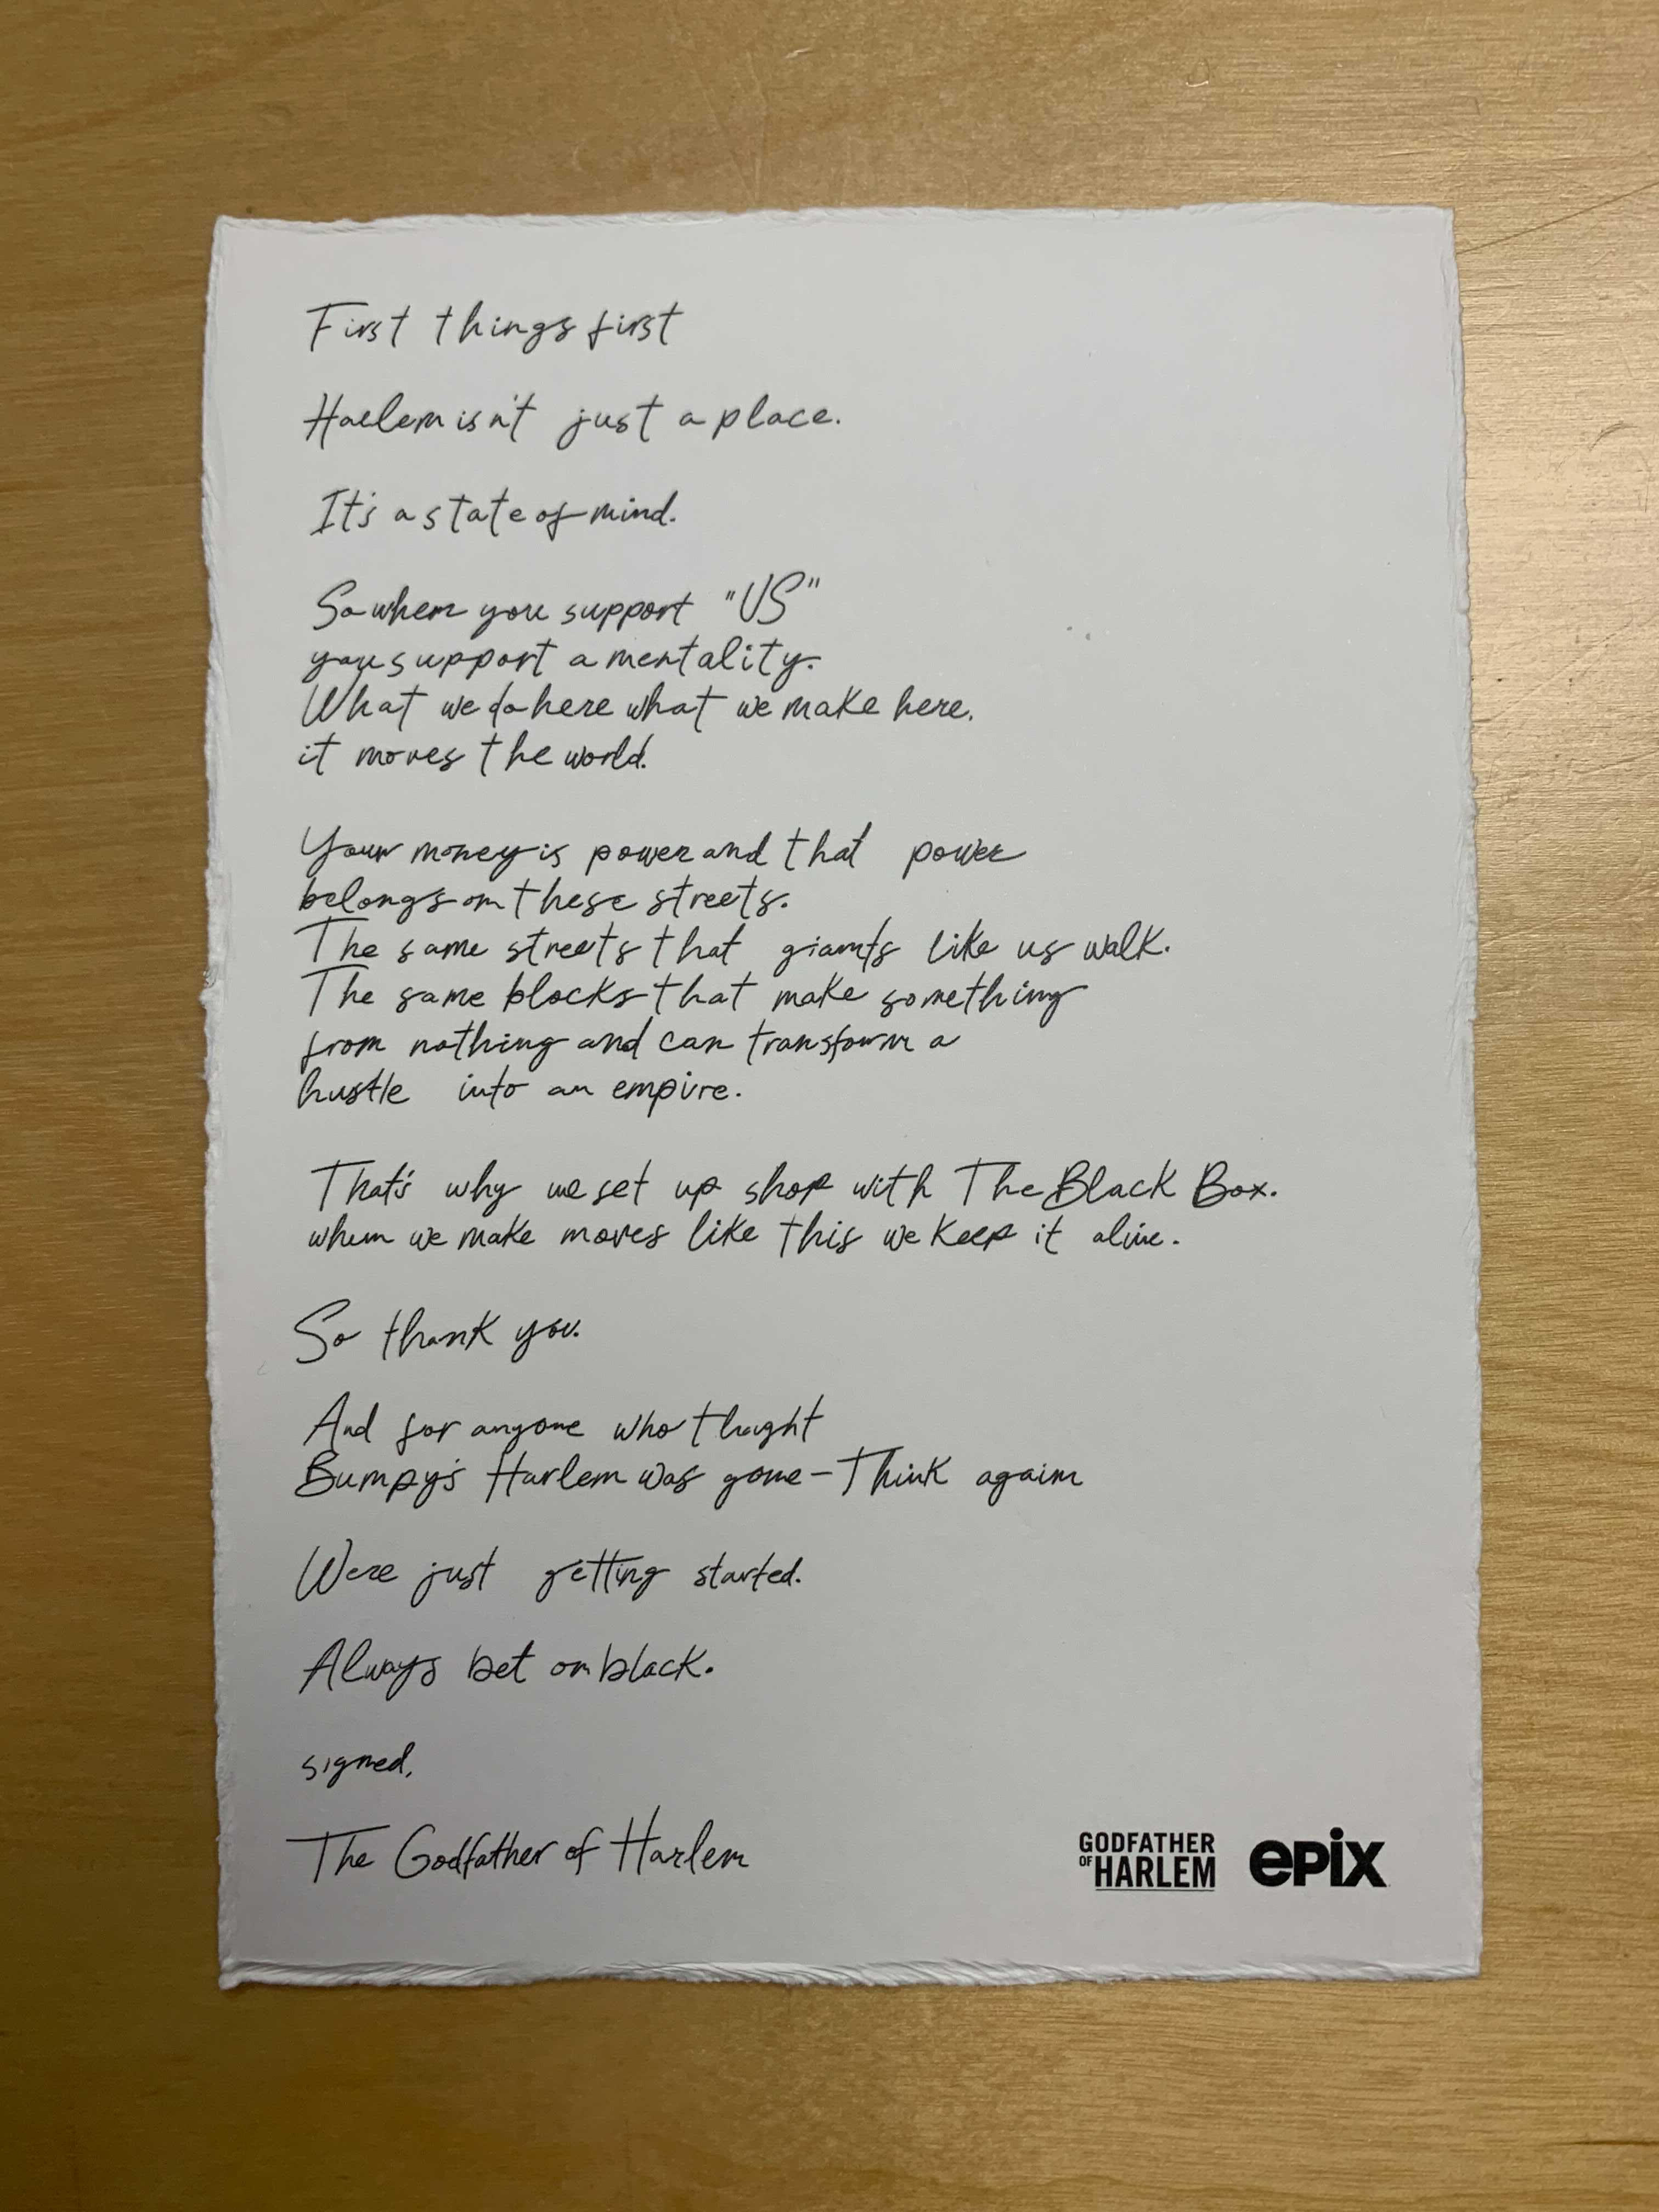 First things first
Harlem isn't just a place.
It's a state of mind.
So when you support "US"
you support a mentality.
What we do here what we make here.
it moves the world.
Your money is power and that power
belongs on these streets.
The same streets that giants like us walk.
The same blocks that make something
from nothing and can transform a
hustle into an empire.
That's why we set up shop with The Black Box.
when we make moves like this we keep it alive.
So thank you.
And for anyone who thought
Bumpy's Harlem was gone - Think again
We're just getting started.
Always bet on black.
signed,
The Godfather of Harlem
GODFATHER
OF HARLEM
epix